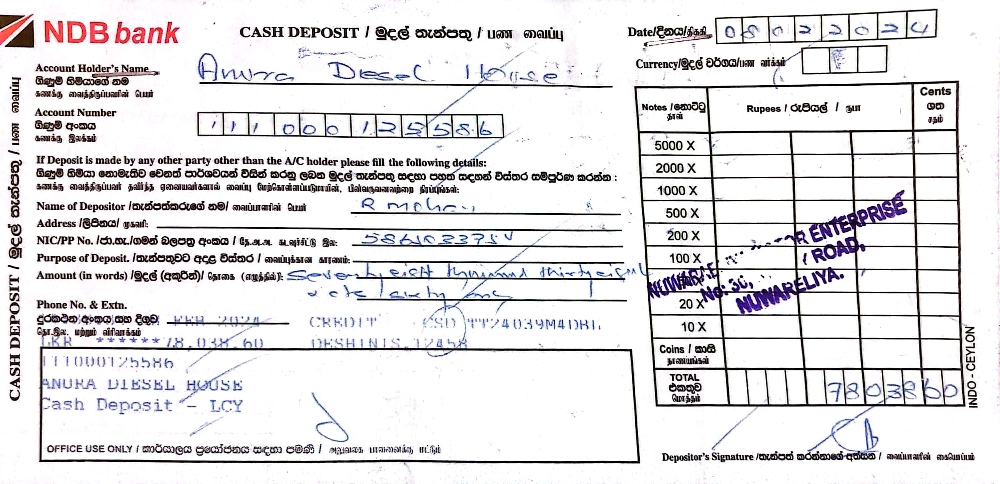 NDB bank
CASH DEPOSIT / මුදල් තැන්පතු / பண வைப்பு
Date/දිනය/திகதி 08022024
Currency/මුදල් වර්ගය/பண வர்க்கம்
Account Holder's Name Anura Diesel House
ගිණුම් හිමියාගේ නම
கணக்கு வைத்திருப்பவரின் பெயர்
Account Number 111000125586
ගිණුම් අංකය
கணக்கு இலக்கம்
If Deposit is made by any other party other than the A/C holder please fill the following details:
ගිණුම් හිමියා නොමැතිව වෙනත් පාර්ශවයන් විසින් කරනු ලබන මුදල් තැන්පතු සඳහා පහත සඳහන් විස්තර සම්පූර්ණ කරන්න :
கணக்கு வைத்திருப்பவர் தவிர்ந்த ஏனையவர்களால் வைப்பு மேற்கொள்ளப்படுமாயின், பின்வருவனவற்றை நிரப்புங்கள்:
Name of Depositor /තැන්පත්කරුගේ නම/ வைப்பாளரின் பெயர் R mohan
Address /ලිපිනය/ முகவரி:
NIC/PP No. /ජා.හැ./ගමන් බලපත්‍ර අංකය / தே.அ.அ. கடவுச்சீட்டு இல:
Purpose of Deposit. /තැන්පතුවට අදාළ විස්තර / வைப்புக்கான காரணம்:
Amount (in words) / මුදල් (අකුරින්)/ தொகை (எழுத்தில்): Seventy eight thousand thirty eight
sixty
Phone No. & Extn.
දුරකථන අංකය සහ දිගුව FEB 2024 CREDIT CSD TT24039M4DBL
தொ.இல. மற்றும் விரிவாக்கம்
LKR ******78,038.60 DESHINIS.12458
111000125586
ANURA DIESEL HOUSE
Cash Deposit - LCY
OFFICE USE ONLY / කාර්යාලය ප්‍රයෝජනය සඳහා පමණි / அலுவலக பாவனைக்கு மட்டும்
Notes /නෝට්ටු
தாள்
Rupees / රුපියල් / ரூபா
Cents
ශත
சதம்
5000 X
2000 X
1000 X
500 X
200 X
100 X
20 X
10 X
Coins / කාසි
நாணயங்கள்
TOTAL
එකතුව
மொத்தம்
7803860
ENTERPRISE
ROAD,
NUWARELIYA.
Depositor's Signature /තැන්පත් කරන්නාගේ අත්සන / வைப்பாளரின் கையொப்பம்
CASH DEPOSIT / මුදල් තැන්පතු / பண வைப்பு
INDO - CEYLON